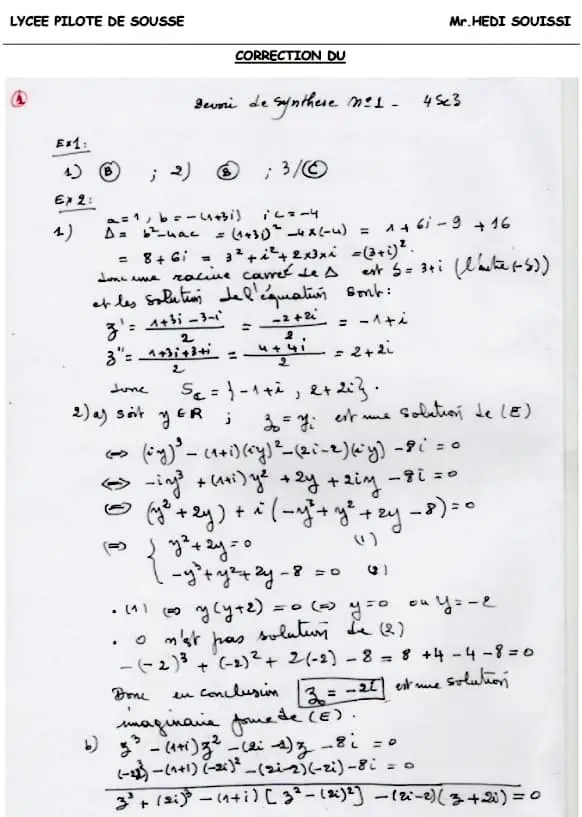 LYCEE PILOTE DE SOUSSE Mr.HEDI SOUISSI
CORRECTION DU
1 Devoir de Synthèse N°1 - 4Sc3
Ex1:
1) B ; 2) B ; 3/ C
Ex 2:
a=1, b=-(1+3i) ; c=-4
1) Δ = b²-4ac = (1+3i)² -4×(-4) = 1+6i-9+16
= 8+6i = 3²+i²+2×3×i =(3+i)².
donc une racine carrée de Δ est δ=3+i (l'autre (-δ))
et les solution de l'équation sont:
z' = (1+3i-3-i)/2 = (-2+2i)/2 = -1+i
z'' = (1+3i+3+i)/2 = (4+4i)/2 = 2+2i
donc S_ℂ = {-1+i, 2+2i}.
2) a) soit y∈ℝ ; z₀ = yi est une solution de (E)
⇔ (iy)³-(1+i)(iy)²-(2i-2)(iy)-8i=0
⇔ -iy³+(1+i)y²+2y+2iy-8i=0
⇔ (y²+2y)+i(-y³+y²+2y-8)=0
⇔ { y²+2y=0 (1)
-y³+y²+2y-8=0 (2)
. (1) ⇔ y(y+2)=0 ⇔ y=0 ou y=-2
. 0 n'est pas solution de (2)
-(-2)³+(-2)²+2(-2)-8=8+4-4-8=0
Donc en conclusion z₀=-2i est une solution
imaginaire pure de (E).
b) z³-(1+i)z²-(2i-2)z-8i=0
(-2i)³-(1+i)(-2i)²-(2i-2)(-2i)-8i=0
z³+(2i)³-(1+i)[z²-(2i)²]-(2i-2)(z+2i)=0